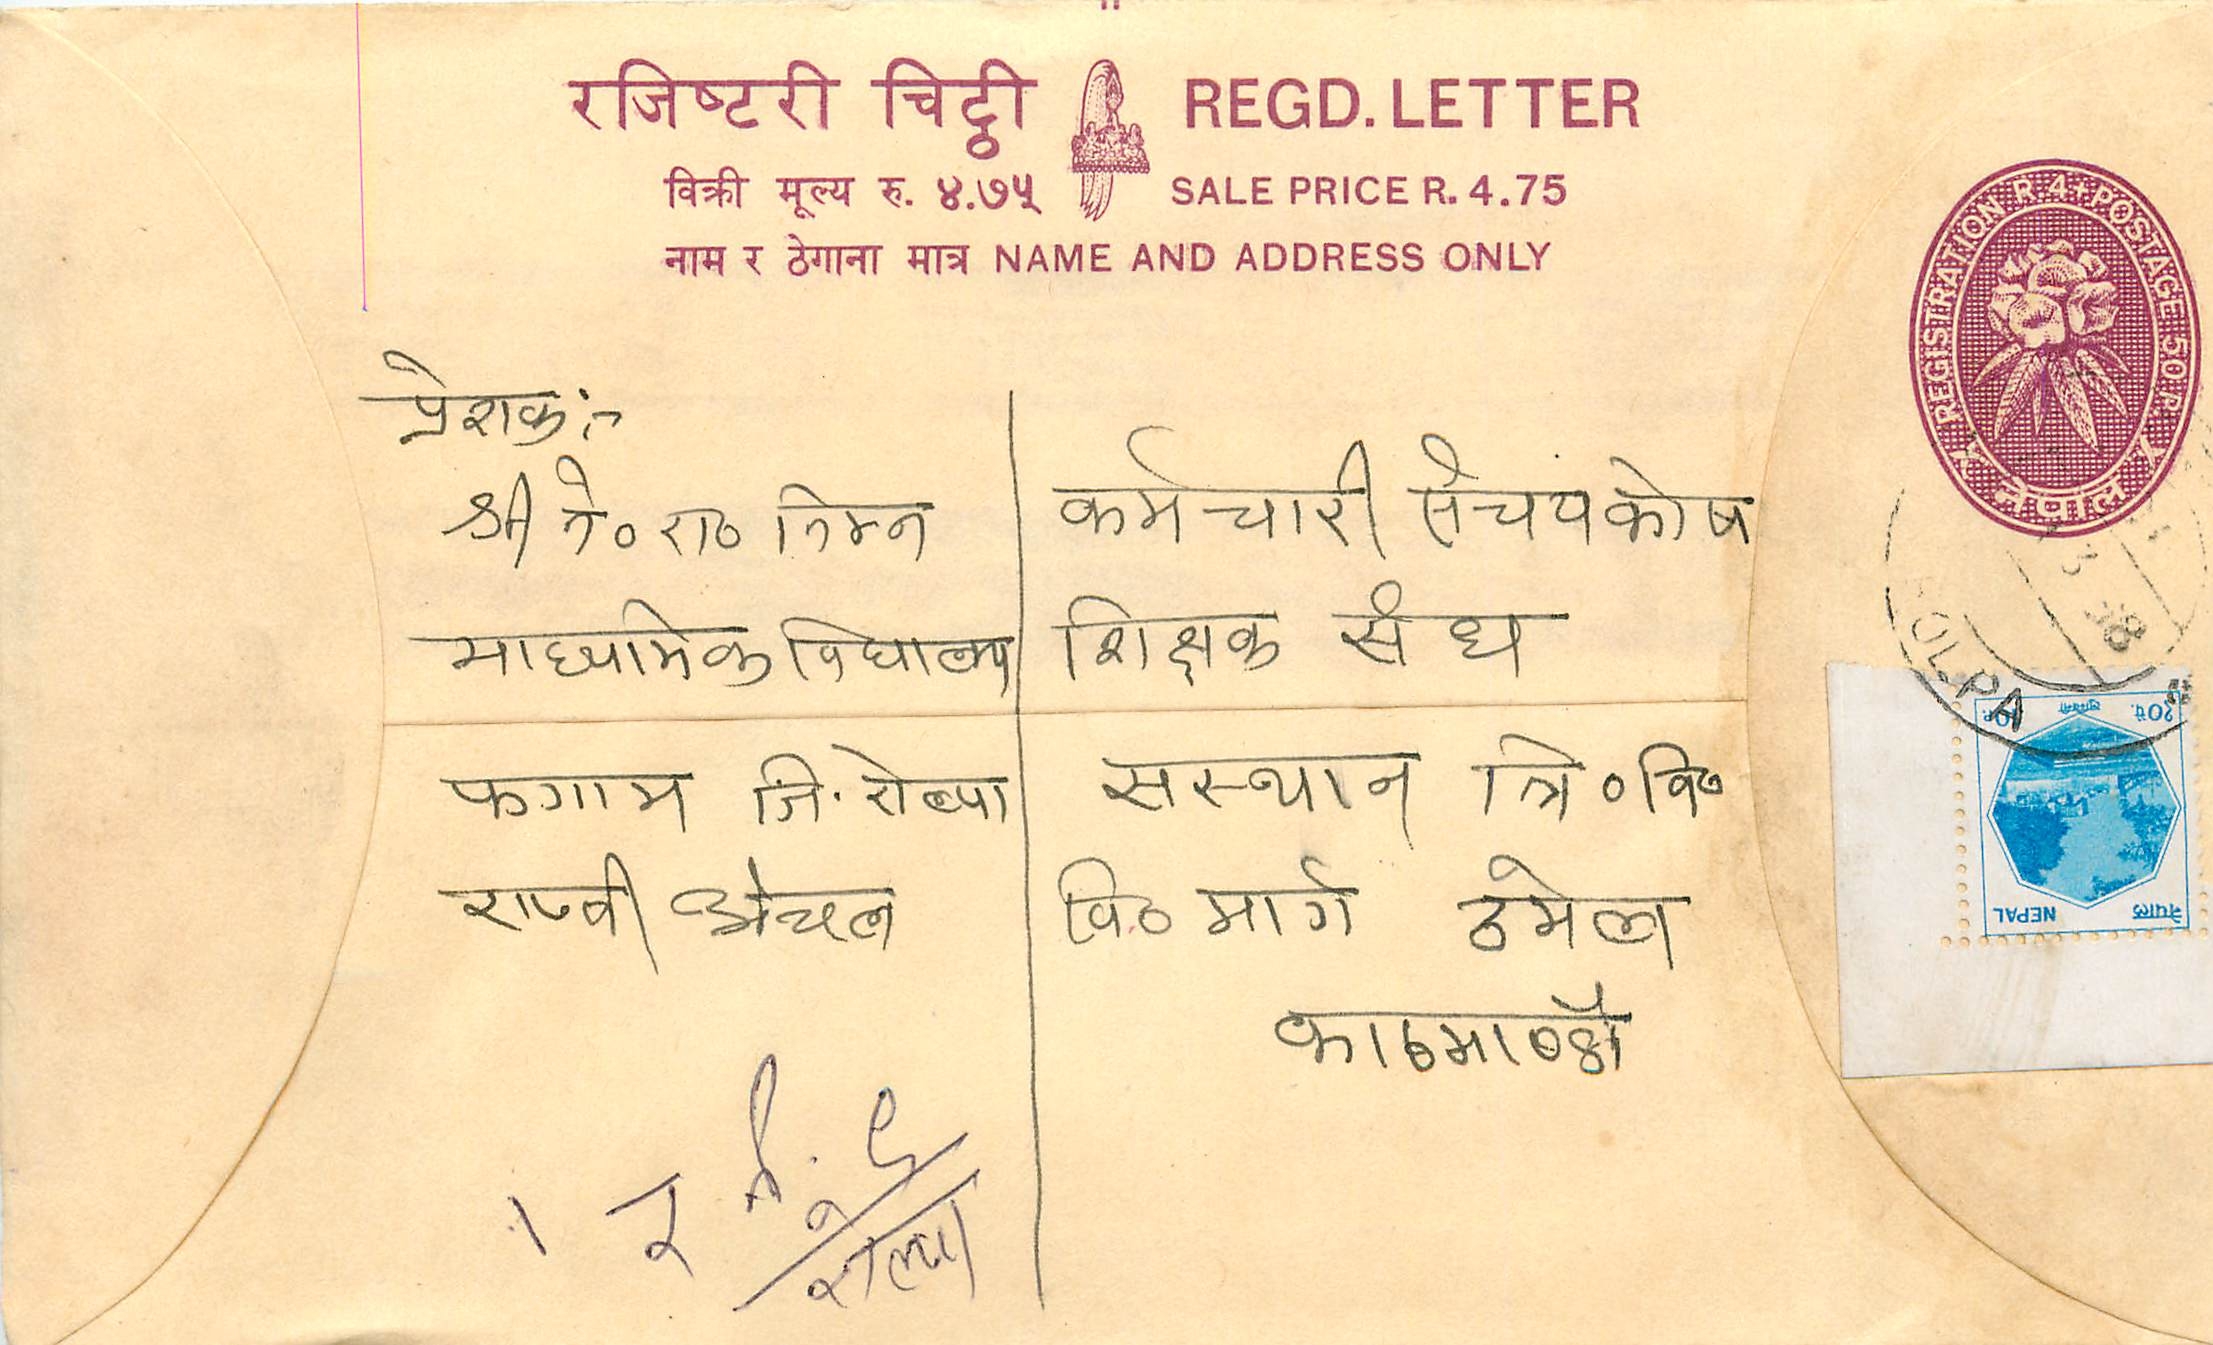 रजिष्टरी चिट्ठी REGD. LETTER
विक्री मूल्य रु. ४.७५ SALE PRICE R. 4.75
नाम र ठेगाना मात्र NAME AND ADDRESS ONLY
REGISTRATION R 4+POSTAGE 50 P.
नेपाल
प्रेशक:-
श्री ने० रा० निम्न
माध्यामिक विद्यालय
फगाम जि. रोल्पा
राप्ती अंचल
कर्मचारी संचयकोष
शिक्षक संघ
सस्थान त्रि० वि०
वि० मार्ग ठमेल
काठमाण्डौ
ROLPA
र
रोल्पा
२०पै. लुम्बिनी
नेपाल NEPAL